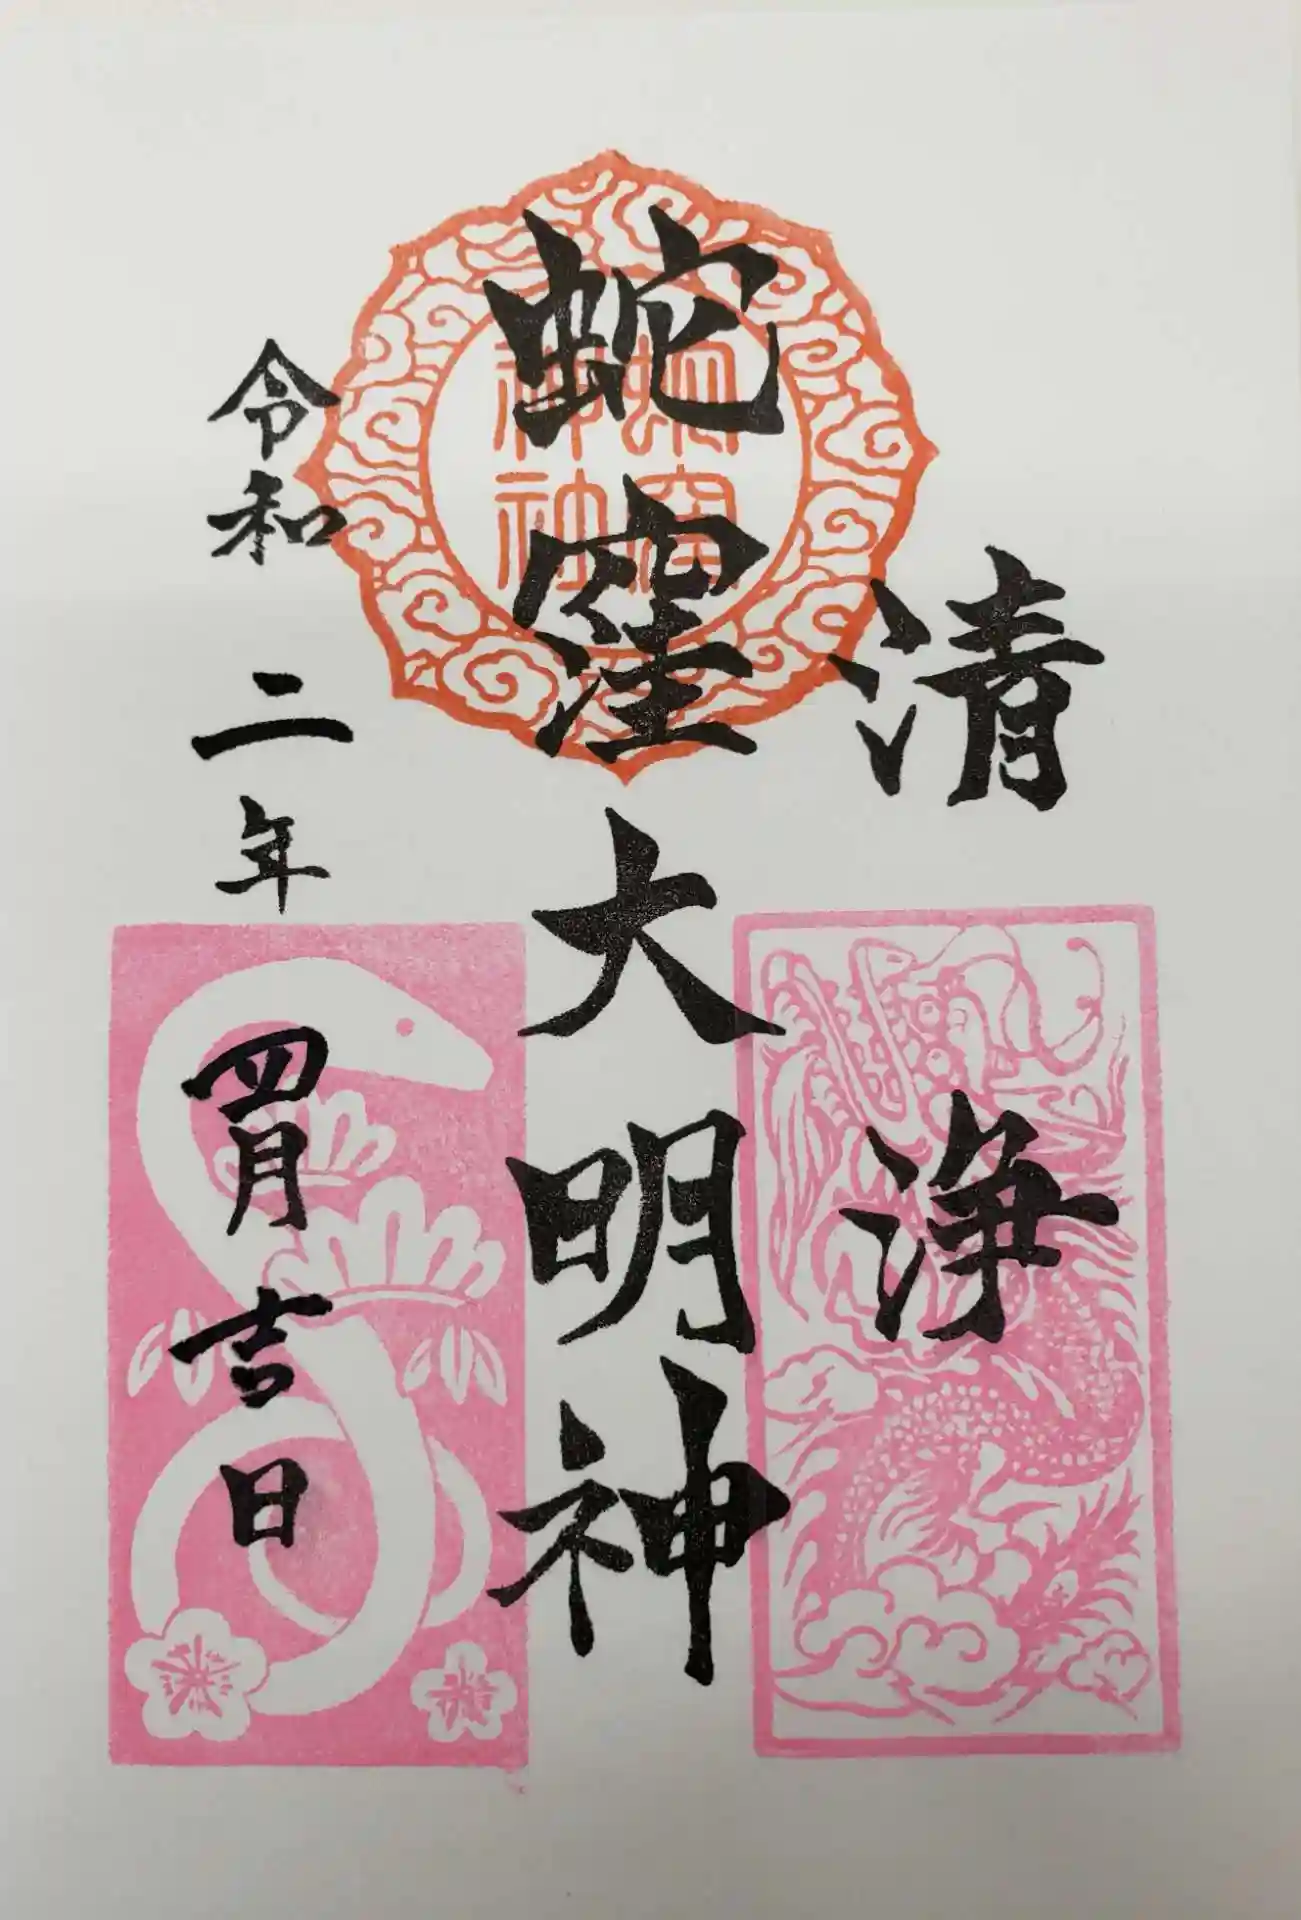 清浄
蛇窪大明神
蛇窪神社
令和二年四月吉日